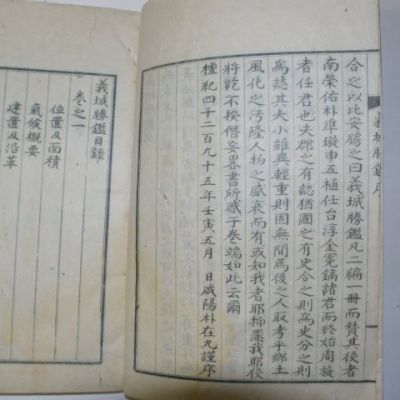 義城勝鑑序
合之以比安牓之曰義城勝鑑凡二編一冊而贊其役者
南榮佑朴準璇申五植任台淳金冕鎬諸君而終始周旋
者任君也夫郡之有誌猶國之有史合之則爲史分之則
爲誌其大小雖與輕重則固無間焉後之人取考乎鄉土
風化之汚隆人物之盛衰而有或如我者耶抑罪我耶役
將訖不揆僭妄畧書所感于卷端如此云爾
檀紀四千二百九十五年壬寅五月 日咸陽朴在九謹序
義城勝鑑目錄
卷之一
位置及面積
氣候概要
建置及沿革